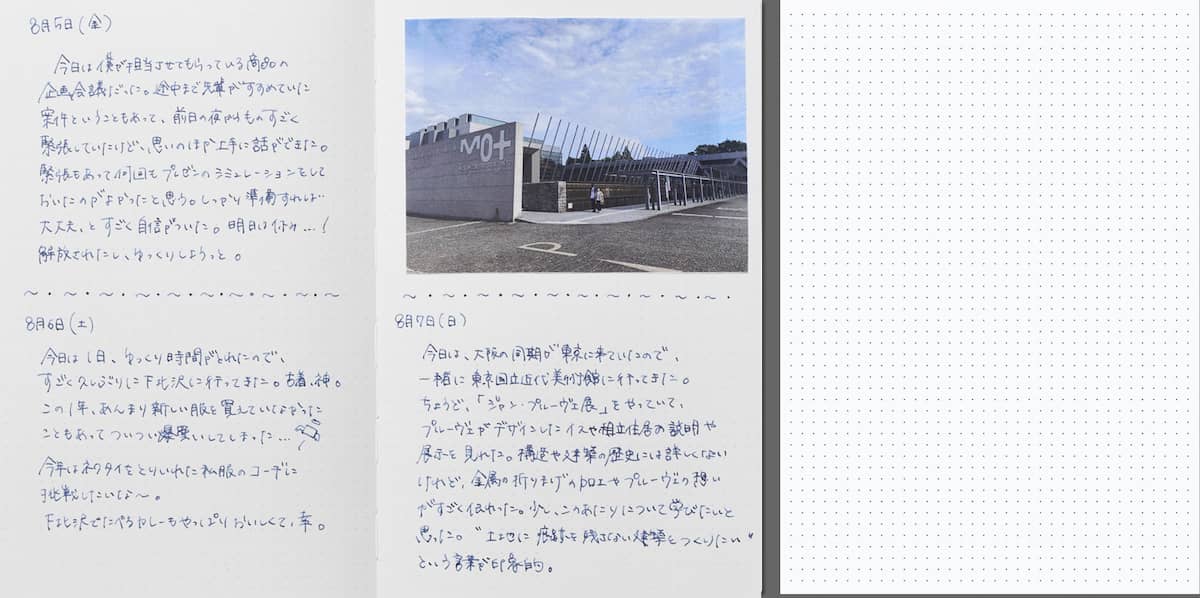 8月5日(金)
今日は僕が担当させてもらっている商品の
企画会議だった。途中まで先輩がすすめていた
案件ということもあって、前日の夜からものすごく
緊張していたけど、思いのほか上手に話ができた。
緊張もあって何回もプレゼンのシミュレーションをして
おいたのがよかったと思う。しっかり準備すれば
大丈夫、とすごく自信がついた。明日は休み…!
解放されたし、ゆっくりしようっと。
8月6日(土)
今日は1日、ゆっくり時間がとれたので、
すごく久しぶりに下北沢に行ってきた。古着、神。
この1年、あんまり新しい服を買えていなかった
こともあってついつい爆買いしてしまった…
今年はネクタイをとりいれた私服のコーデに
挑戦したいな〜。
下北沢でたべるカレーもやっぱりおいしくて、幸。
MOT
8月7日(日)
今日は、大阪の同期が東京に来ていたので、
一緒に東京国立近代美術館に行ってきた。
ちょうど、「ジャン・プルーヴェ展」をやっていて、
プルーヴェがデザインしたイスや組立住居の説明や
展示を見れた。構造や建築の歴史には詳しくない
けれど、金属の折りまげの加工やプルーヴェの想い
がすごく伝わった。少し、このあたりについて学びたいと
思った。"土地に痕跡を残さない建築をつくりたい"
という言葉が印象的。